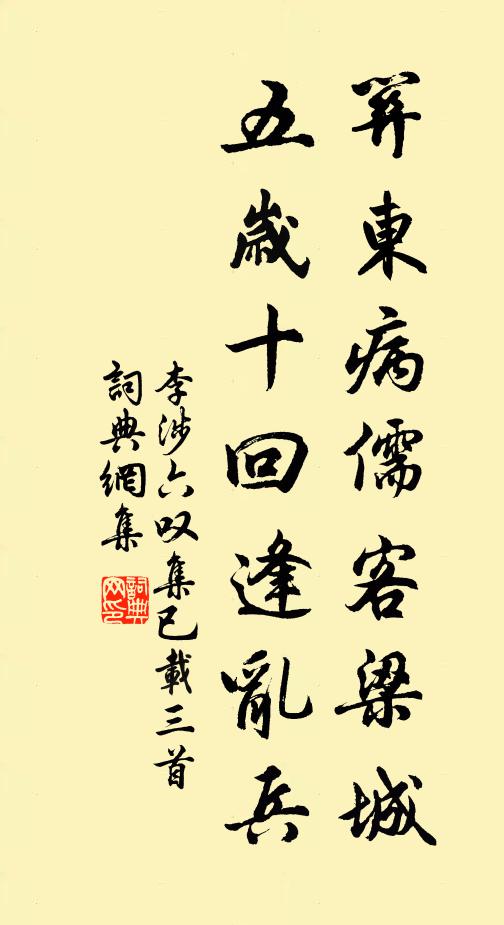 關東病儒客梁城
五歲十回逢亂兵
李涉六叹集已載三首
詞典網集